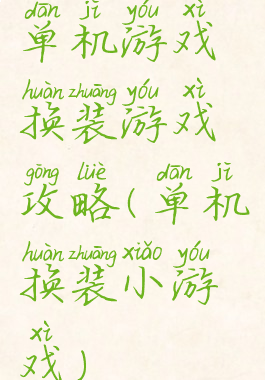 dān jī yóu xì
单机游戏
huàn zhuāng yóu xì
换装游戏
gōng lüè dān jī
攻略(单机
huàn zhuāng xiǎo yóu
换装小游
xì
戏)